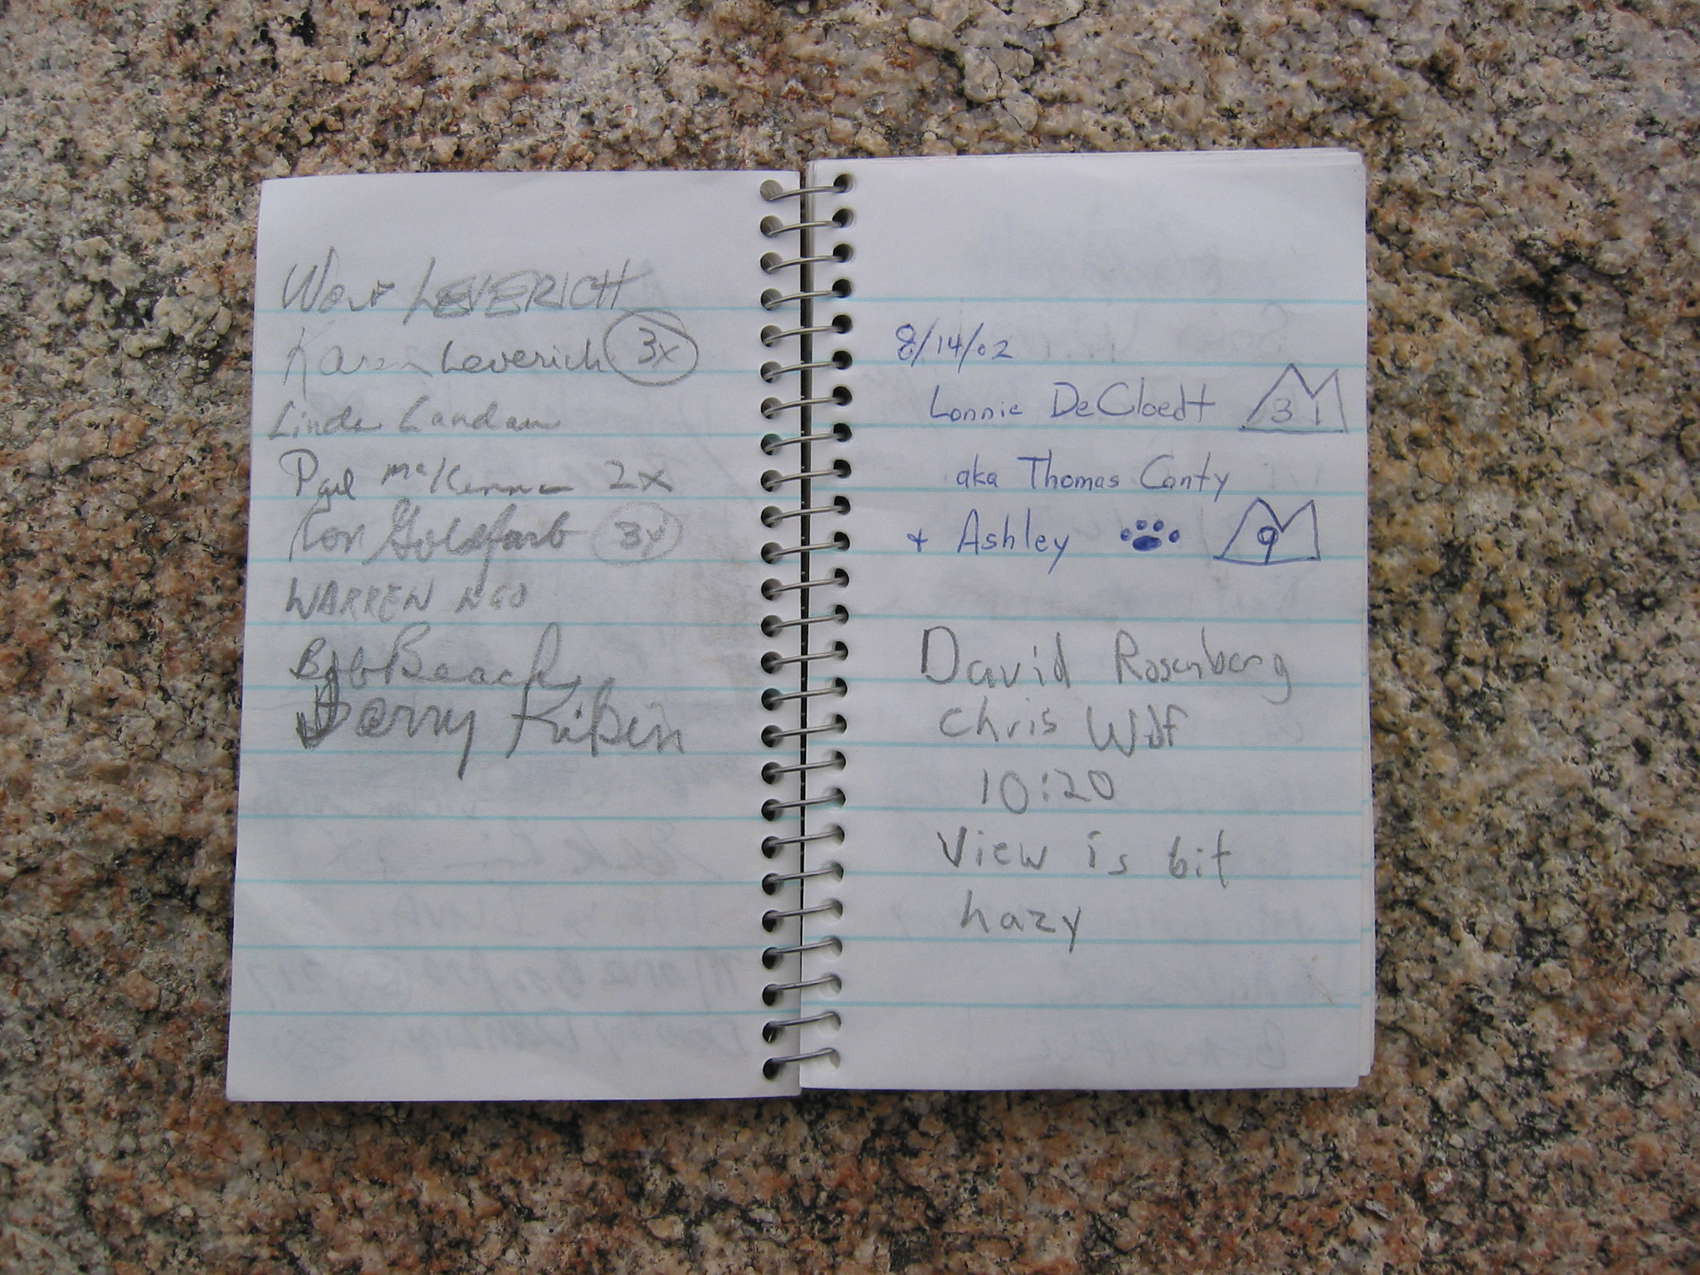 Wolf LEVERICH
Karen Leverich 3x
Linda Landau
McKenna 2x
Goldfarb 3x
WARREN
Bob Beach
8/14/02
Lonnie DeCloedt 31
aka Thomas Canty
+ Ashley 9
David Rosenberg
Chris Wolf
10:20
View is bit
hazy